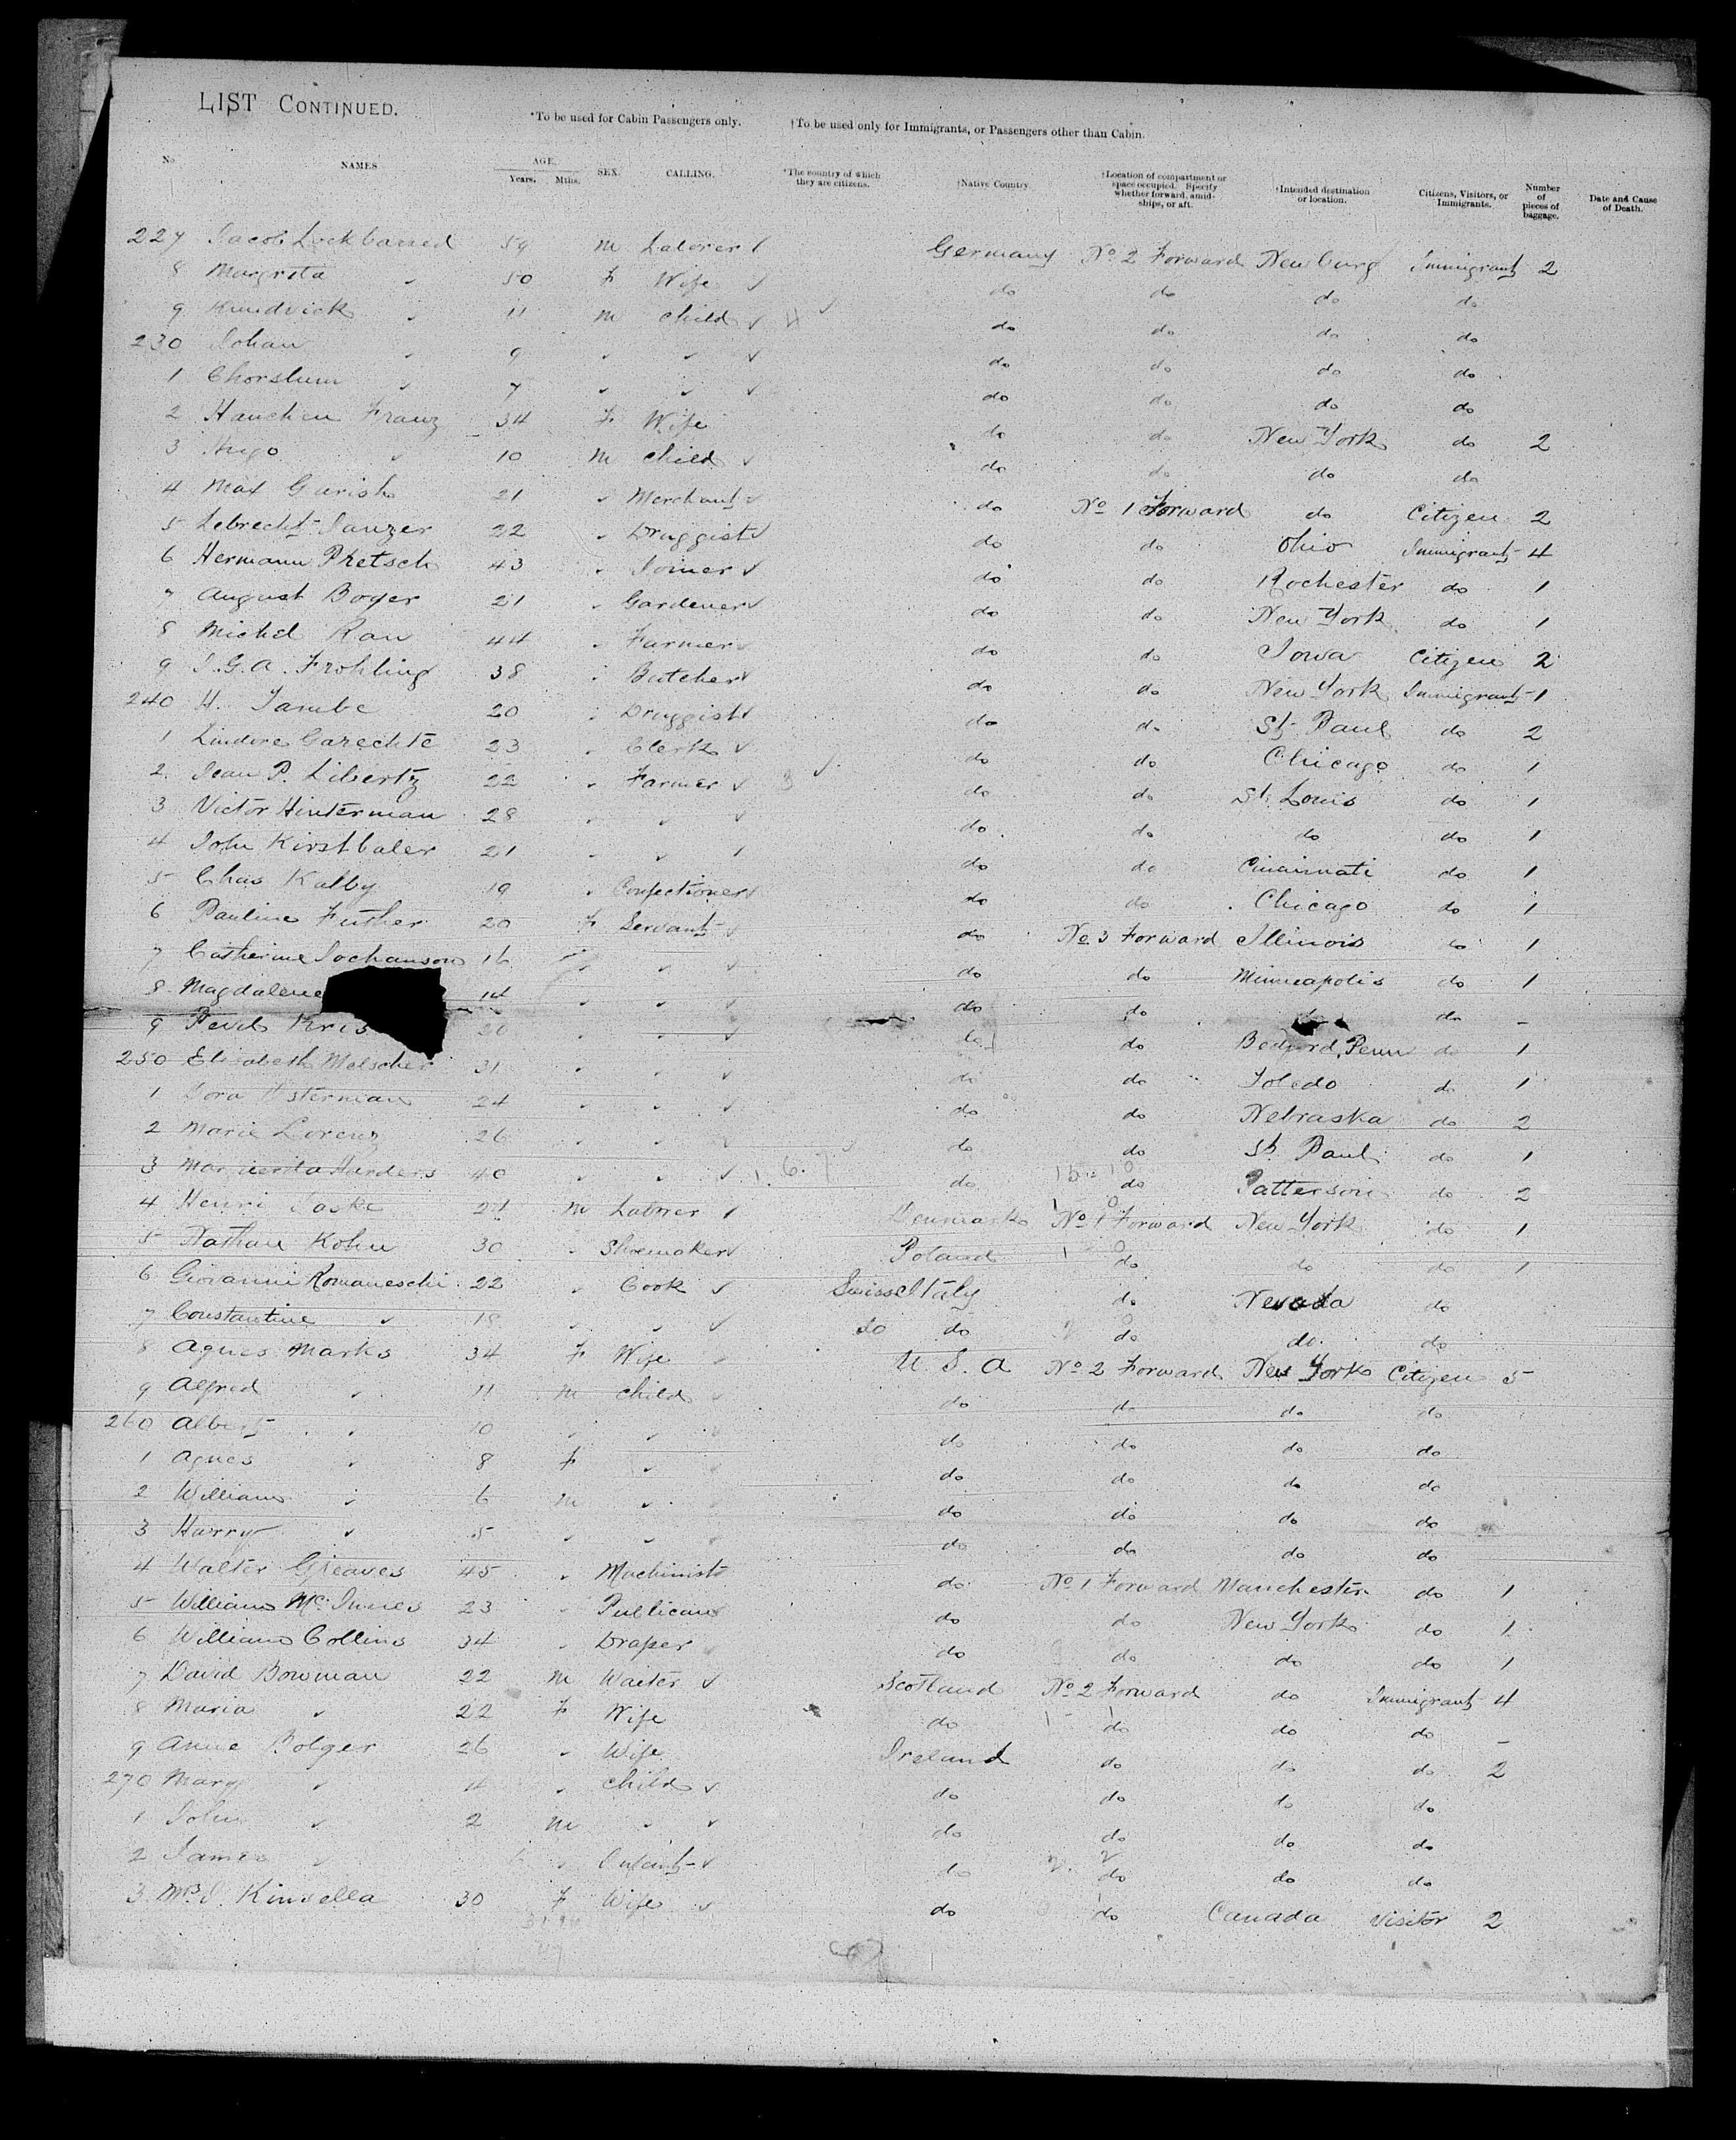 LIST CONTINUED.
*To be used for Cabin Passengers only. †To be used only for Immigrants, or Passengers other than Cabin.
No. NAMES AGE. Years. Mths. SEX. CALLING. *The country of which they are citizens. †Native Country. †Location of compartment or space occupied. Specify whether forward, amidships, or aft. †Intended destination or location. Citizens, Visitors, or Immigrants. Number of pieces of baggage. Date and Cause of Death.
227 Jacob 59 m Laborer Germany No. 2 Forward Newburg Immigrant 2
8 Margreta " 50 F Wife do do do do
9 " 11 m child do do do do
230 Johan " 9 " " do do do do
1 " 7 " " do do do do
2 Hanchen Franz 34 F Wife do do New York do 2
3 Hugo " 10 m child do do do do
4 Max Gurish 21 " Merchant do No 1 Forward do Citizen 2
5 Lebrecht 22 " Druggist do do Ohio Immigrant 4
6 Hermann Pretsch 43 " Joiner do do Rochester do 1
7 August Boyer 21 " Gardener do do New York do 1
8 Michel Rau 44 " Farmer do do Iowa Citizen 2
9 J.G.A. Frohling 38 " Butcher do do New York Immigrant 1
240 H. 20 " Druggist do do St Paul do 2
1 23 " Clerk do do Chicago do 1
2 Jean P. Libertz 22 " Farmer do do St. Louis do 1
3 Victor Hinterman 28 " " do do do do 1
4 John Kirstbaler 21 " " do do Cincinnati do 1
5 Chas Kalby 19 " Confectioner do do Chicago do 1
6 Pauline Futher 20 F Servant do No 3 Forward Illinois do 1
7 Catherine Jochanson 16 " " do do Minneapolis do 1
8 Magdalene 14 " " do do do -
9 Kris 20 " " do do Bedford, Penn do 1
250 Elizabeth Melscher 31 " " do do Toledo do 1
1 Dora Osterman 24 " " do do Nebraska do 2
2 Marie Lorenz 26 " " do do St. Paul do 1
3 Marguerita Harders 40 " " do do Patterson do 2
4 Henri Taske 21 m Laborer Denmark No 1 Forward New York do 1
5 Nathan Kohn 30 " Shoemaker Poland do do do 1
6 Giovanni Romaneschi 22 " Cook Suisse Italy do Nevada do
7 Constantine " 18 " " do do do do do
8 Agnes Marks 34 F Wife U.S.A No 2 Forward New York Citizen 5
9 Alfred " 11 m child do do do do
260 Albert " 10 " " do do do do
1 Agnes " 8 F " do do do do
2 William " 6 m " do do do do
3 Harry " 5 " " do do do do
4 Walter Greaves 45 " Machinist do No 1 Forward Manchester do 1
5 William McInnes 23 " Publican do do New York do 1
6 William Collins 34 " Draper do do do do 1
7 David Bowman 22 m Waiter Scotland No 2 Forward do Immigrant 4
8 Maria " 22 F Wife do do do do -
9 Anne Bolger 26 " Wife Ireland do do do 2
270 Mary " 4 " child do do do do
1 John " 2 m " do do do do
2 James " " Infant do do do do
3 Mrs J. Kinsella 30 F Wife do do Canada Visitor 2